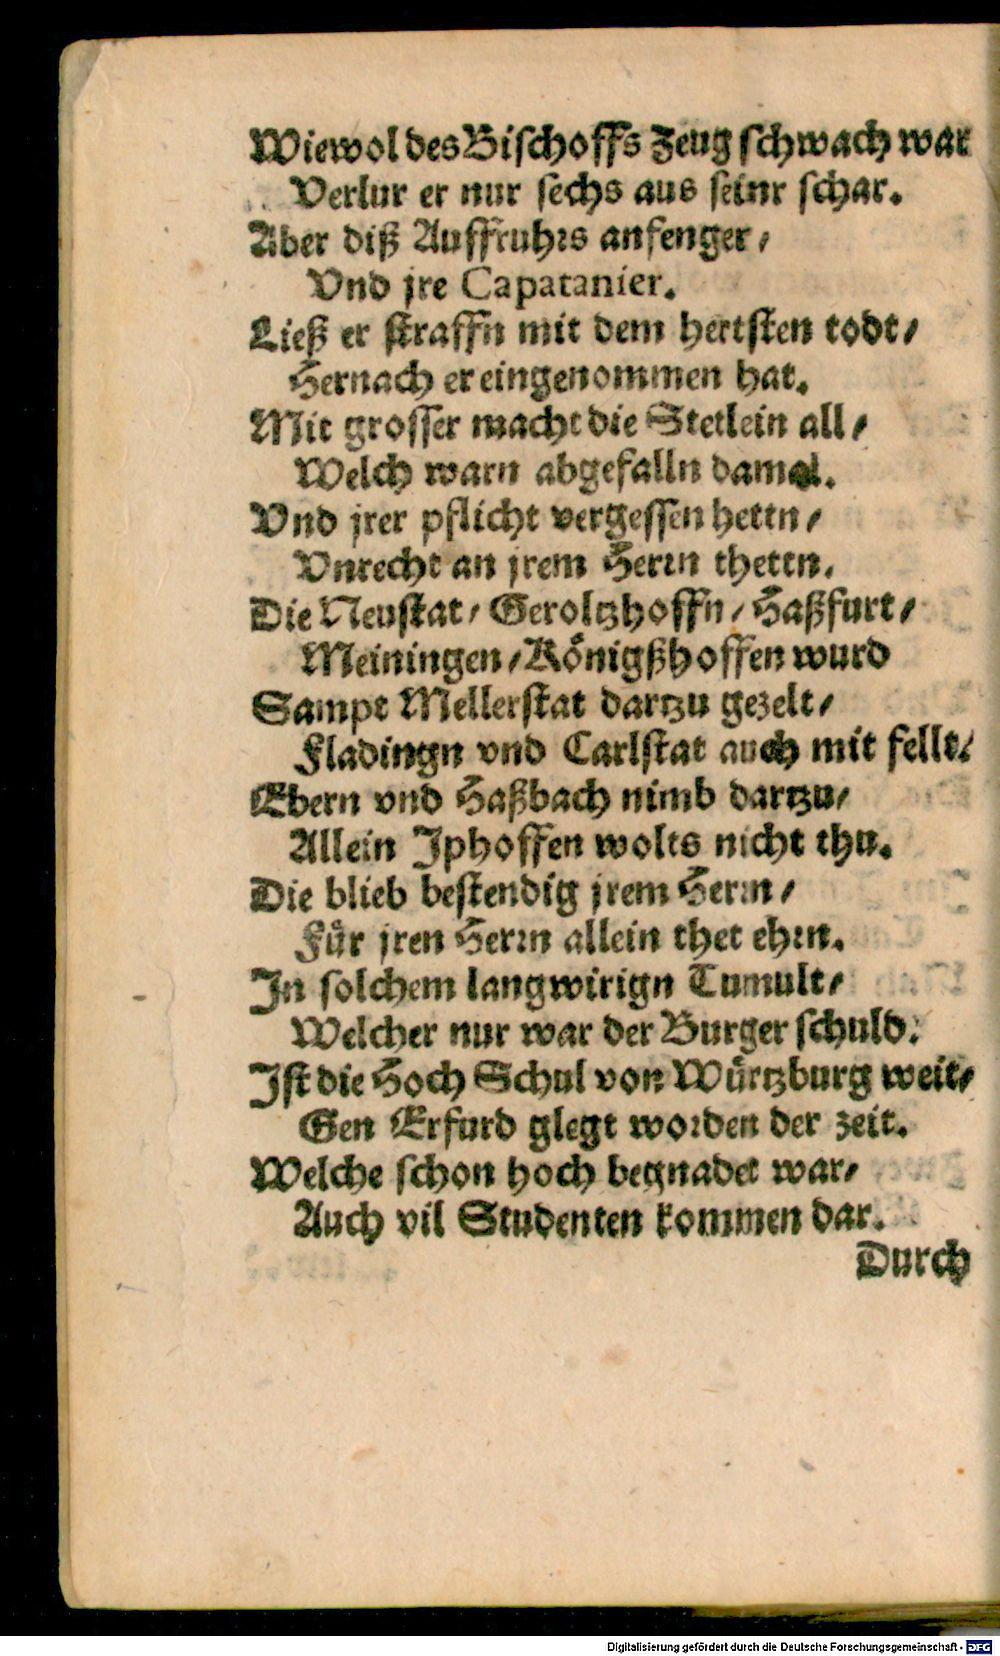 Wiewol des Bischoffs Zeug schwach war
Verlur er nur sechs aus seinr schar.
Aber diß Auffruhrs anfenger /
Vnd jre Capatanier.
Ließ er straffn mit dem hertsten todt /
Hernach er eingenommen hat.
Mit grosser macht die Stetlein all /
Welch warn abgefalln damal.
Vnd jrer pflicht vergessen hettn /
Vnrecht an jrem Herrn thettn.
Die Neustat / Geroltzhoffn / Haßfurt /
Meiningen / Königßhoffen wurd
Sampt Mellerstat dartzu gezelt /
Fladingn vnd Carlstat auch mit fellt.
Ebern vnd Haßbach nimb dartzu /
Allein Jphoffen wolts nicht thu.
Die blieb bestendig jrem Herrn /
Für jren Herrn allein thet ehrn.
Jn solchem langwirign Tumult /
Welcher nur war der Burger schuld.
Jst die Hoch Schul von Würtzburg weit /
Gen Erfurd glegt worden der zeit.
Welche schon hoch begnadet war /
Auch vil Studenten kommen dar.
Durch
Digitalisierung gefördert durch die Deutsche Forschungsgemeinschaft - DFG